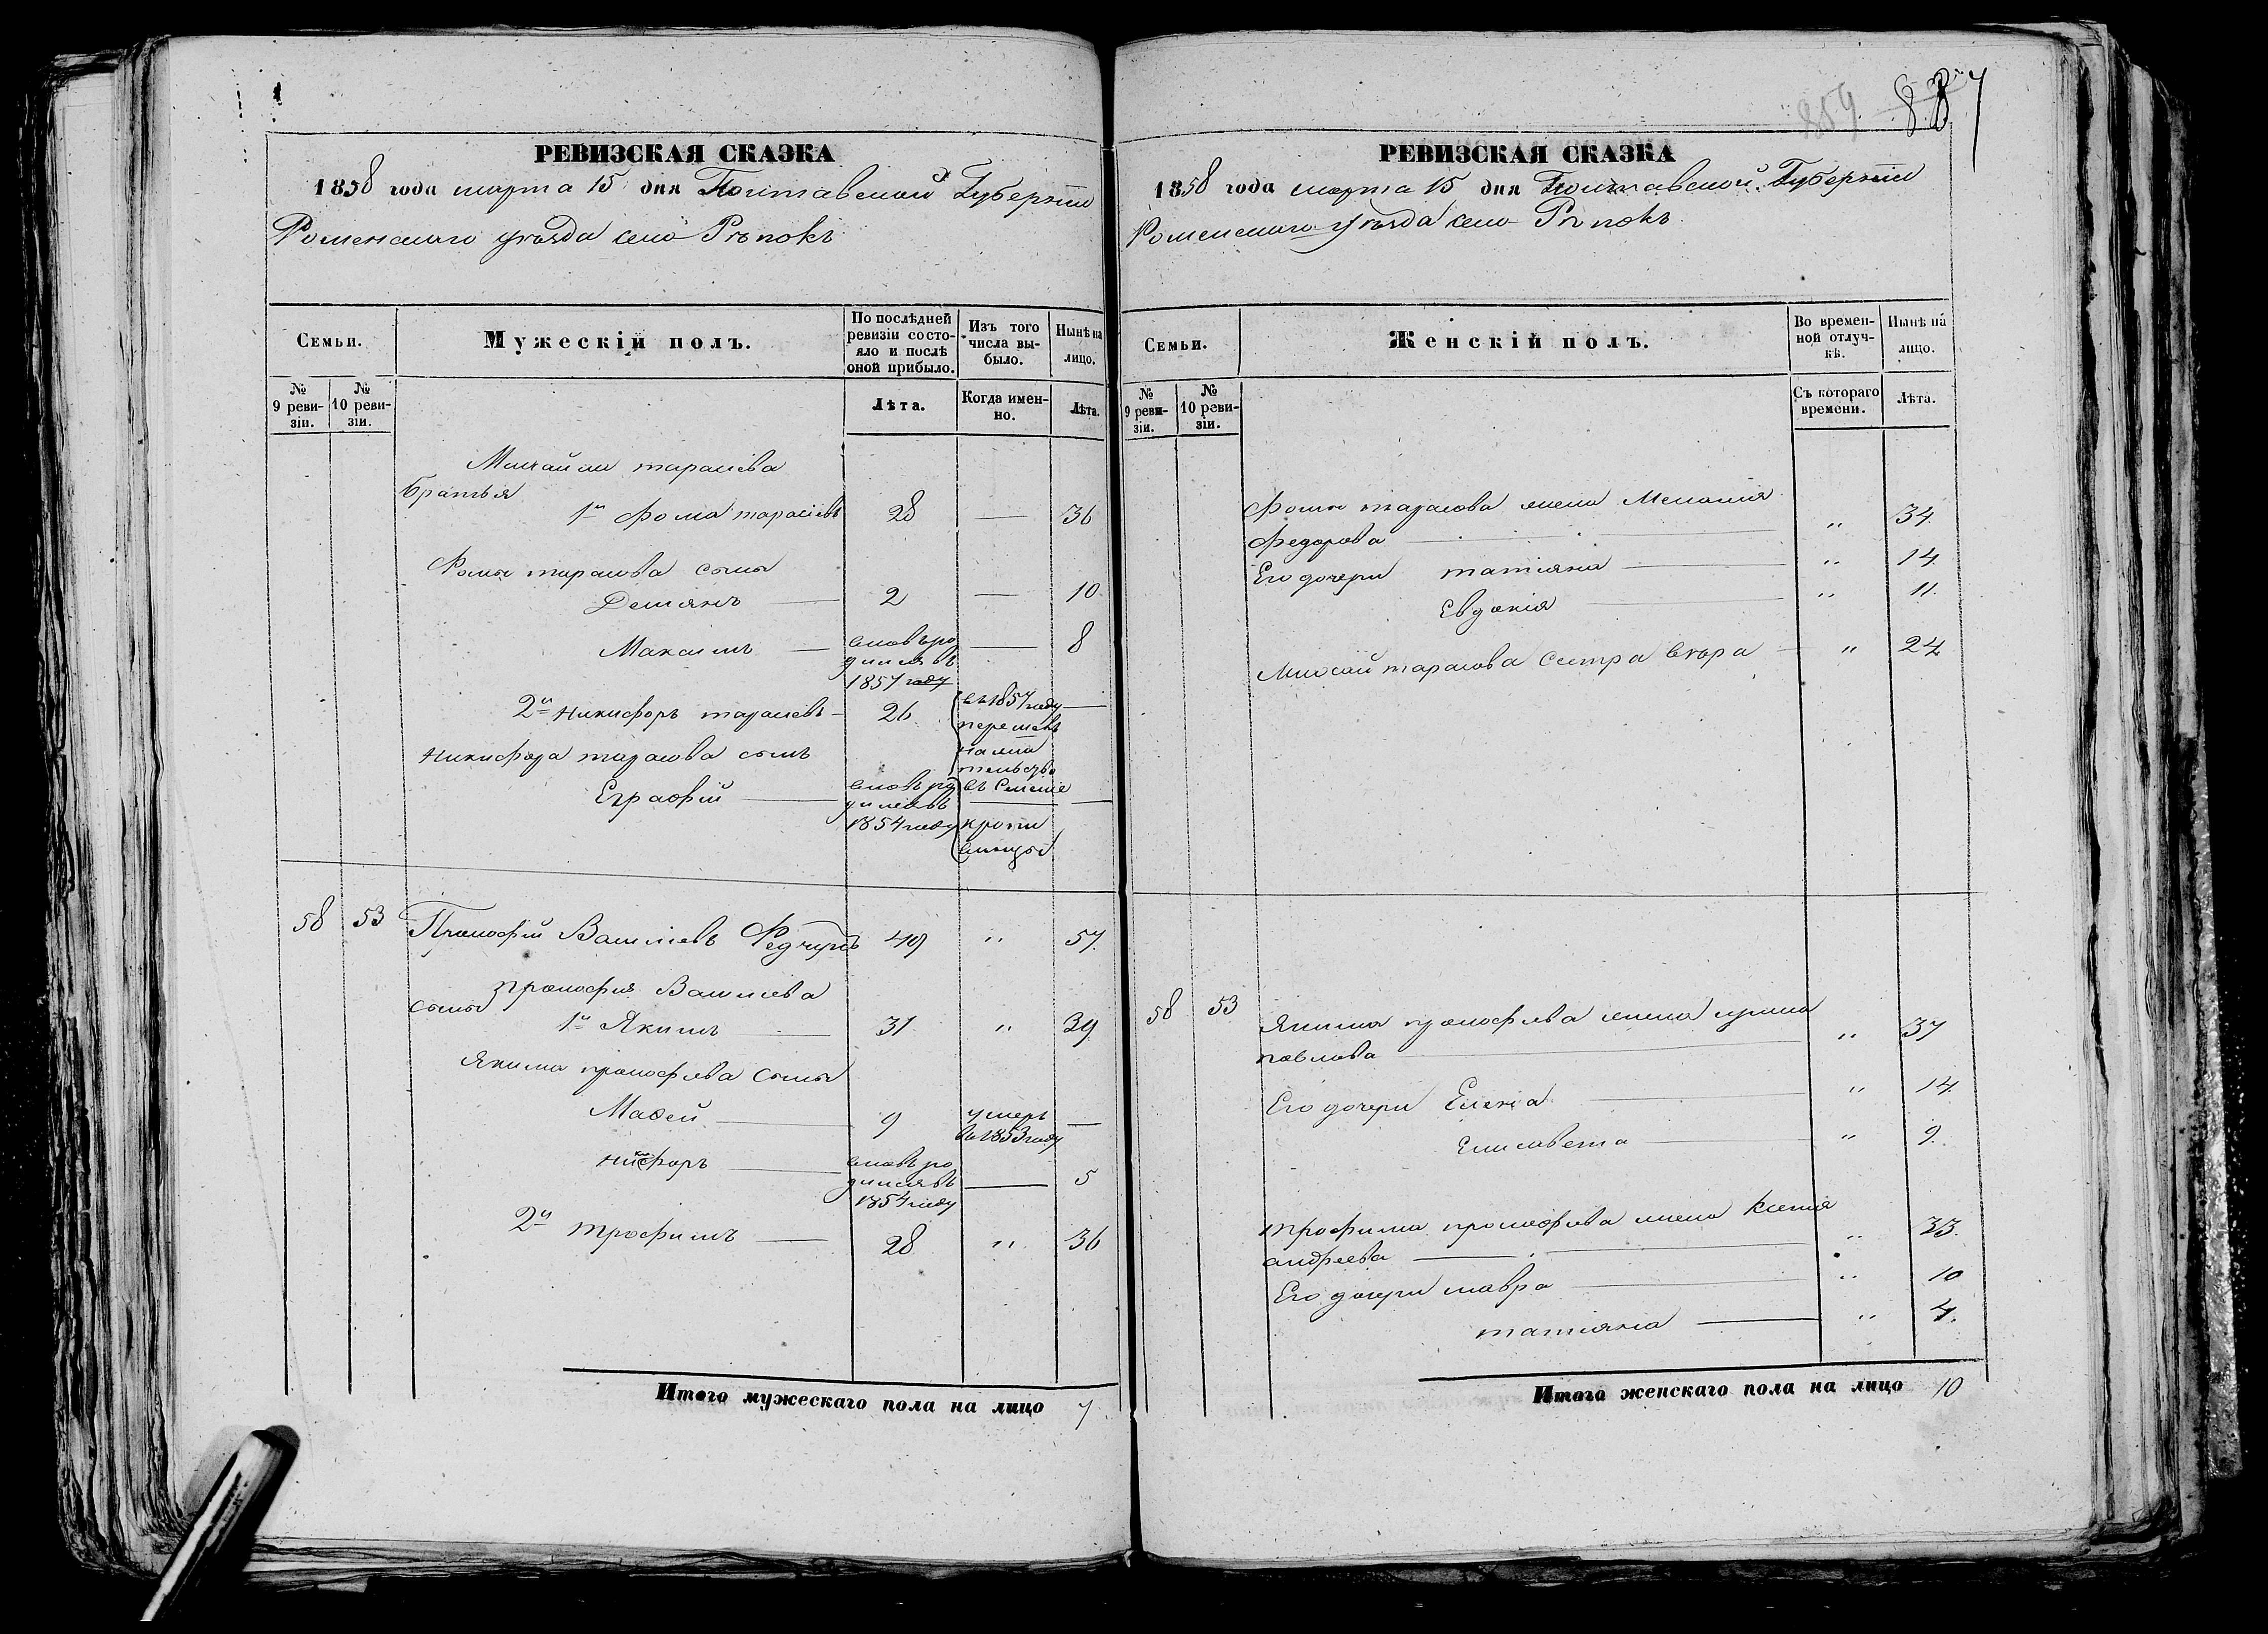 РЕВИЗСКАЯ СКАЗКА
1858 года марта 15 дня Полтавской Губерніи
Роменскаго уѣзда село Рѣпокъ
Семьи.
Мужескій полъ.
По послѣдней ревизіи состояло и послѣ оной прибыло.
Изъ того числа выбыло.
Нынѣ на лицо.
№ 9 ревизіи.
№ 10 ревизіи.
Лѣта.
Когда именно.
Лѣта.
Михайла тарасіева
братья
1й Фома тарасіевъ 28 — 36
Фомы тарасова сыны
Демянъ — 2 — 10
Максимъ — вновь родился въ 1851 году — 8
2й Никифоръ тарасіевъ — 26 въ 1857 году —
Никифора тарасова сынъ
Евграфій — вновь родился въ 1854 году —
58 53 Прокофій Василіевъ Федчунъ 49 " 57.
Прокофія Василіева
сыны
1й Якимъ — 31 " 39
Якима прокофіева сыны
Маѳей — 9 умеръ въ 1853 году —
никифоръ — вновь родился въ 1854 году — 5
2й трофимъ — 28 " 36
Итого мужескаго пола на лицо 7
859 887
РЕВИЗСКАЯ СКАЗКА
1858 года марта 15 дня Полтавской Губерніи
Роменскаго уѣзда село Рѣпокъ
Семьи.
Женскій полъ.
Во временной отлучкѣ.
Нынѣ на лицо.
№ 9 ревизіи.
№ 10 ревизіи.
Съ котораго времени.
Лѣта.
Фомы тарасова жена Меланія
Федорова — " 34.
Его дочери татіяна — " 14.
Евдокія — " 11.
тарасова сестра — " 24
58 53 Якима прокофіева жена ирина
павлова — " 37
Его дочери Елена — " 14.
Елисавета — " 9.
трофима прокофіева жена Ксенія
андреева — " 33.
Его дочери мавра — " 10
татіяна — " 4.
Итого женскаго пола на лицо 10